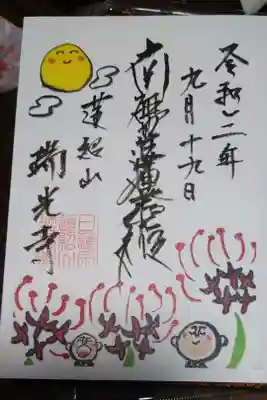 令和三年
九月十九日
南無妙法蓮華経
蓮紹山
瑞光寺